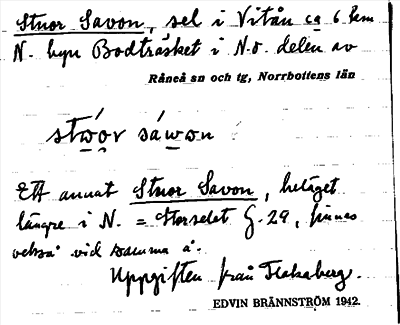 Stuor Savon, sel i Vitån ca 6 km
N. byn Bodträsket i N.ö. delen av
Råneå sn och tg, Norrbottens län
stẉọ́r sáẉon
Ett annat Stuor Savon, beläget
längre i N. = Storselet G. 29, finnes
också vid samma å.
Uppgiften från Flakaberg.
EDVIN BRÄNNSTRÖM 1942.